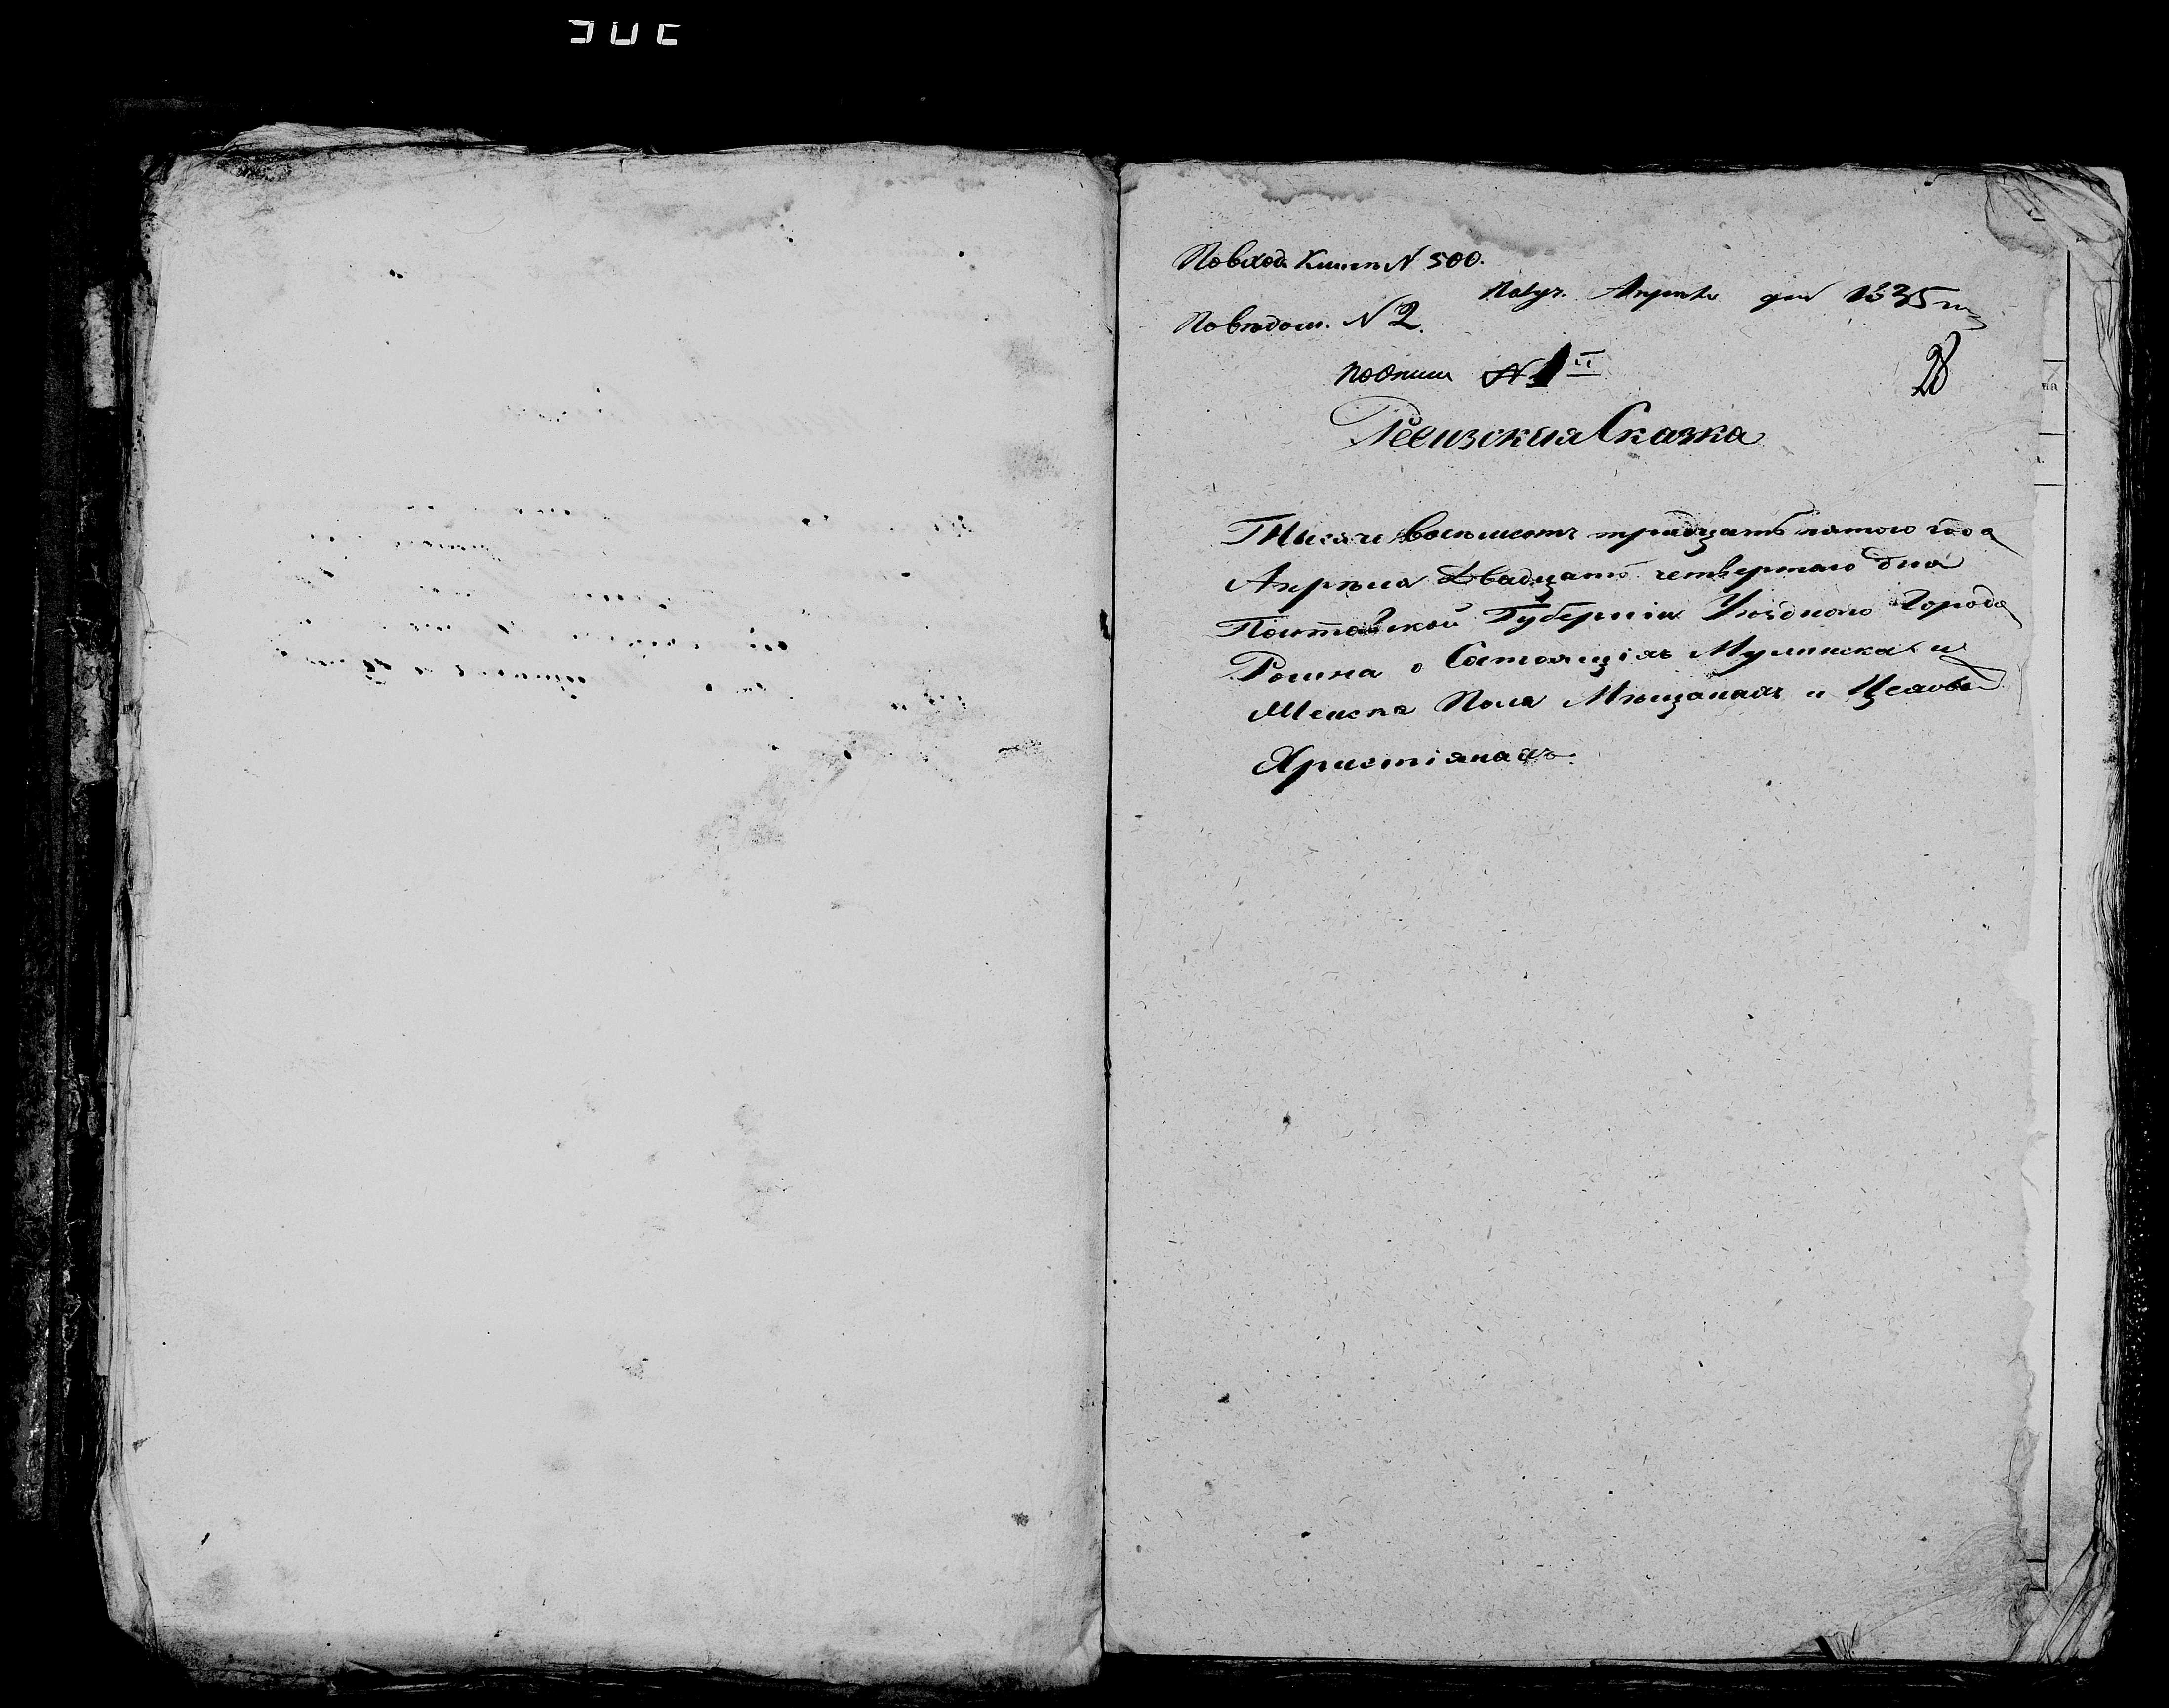 По вход. Книги N 500.
Получ. Апреля дня 1835 г
По ведом. N 2.
28
По описи N 1й
Ревизская Сказка
Тысяча восемсотъ тридцать пятого года
Апреля Двадцать четвертаго дня
Полтавской Губерніи Уездного Города
Ромна о Состоящихъ Мужеска и
Женска Пола Мещанахъ и Цеховы
Христіянахъ.